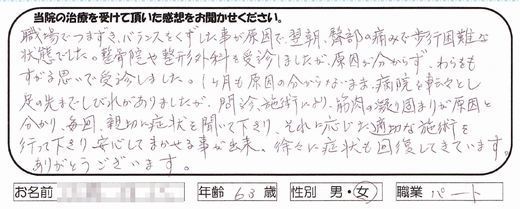 当院の治療を受けて頂いた感想をお聞かせください。
職場でつまずき、バランスをくずした事が原因で、翌朝、臀部の痛みで歩行困難な
状態でした。整骨院や整形外科を受診しましたが、原因が分からず、わらをも
すがる思いで受診しました。1ヶ月も原因の分からないまま、病院を転々とし
足の先までしびれがありましたが、問診、施術により、筋肉の凝り固まりが原因と
分かり、毎回、親切に症状を聞いて下さり、それに応じた適切な施術を
行って下さり、安心してまかせる事が出来、徐々に症状も回復してきています。
ありがとうございます。
お名前 年齢 63 歳 性別 男・女 職業 パート